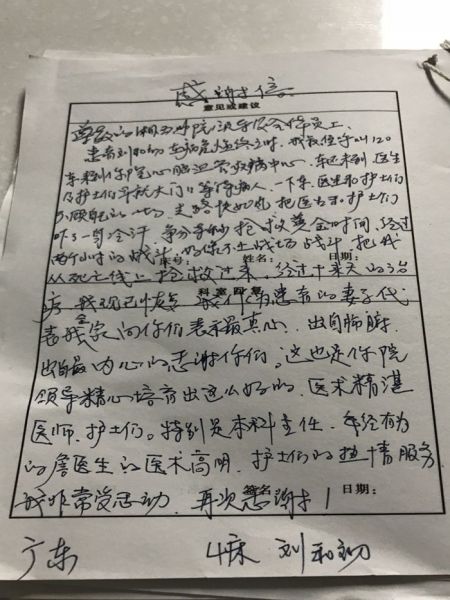 感谢信
意见或建议
尊敬的湘力医院领导及全体员工、
患者刘和初 在病危垂危之时、我最信得叫120
车到你院心脑血管救病中心、车还未到 医生
及护士们早就大门口等待病人、一下车 医生和护士们
不顾自己的一切、走路快如飞 把医生和护士们
吓了一身冷汗 争分夺秒 抢救黄金时间、经过
两个小时的战斗 战场战斗、把我
姓名： 日期：
从死亡线上抢救过来、经过十来天的治
科室回复
疗 我现已康复 我作为患者的妻子代
表我全家向你们表示最真心、出自肺腑、
出自最内心的感谢你们、这也是你院
领导精心培育出这么好的、医术精湛
医师、护士们。特别是本科主任、年轻有为
的詹医生的医术高明、护士们的热情服务
我非常受感动、再次感谢！
签名： 日期：
广东 4床 刘和初